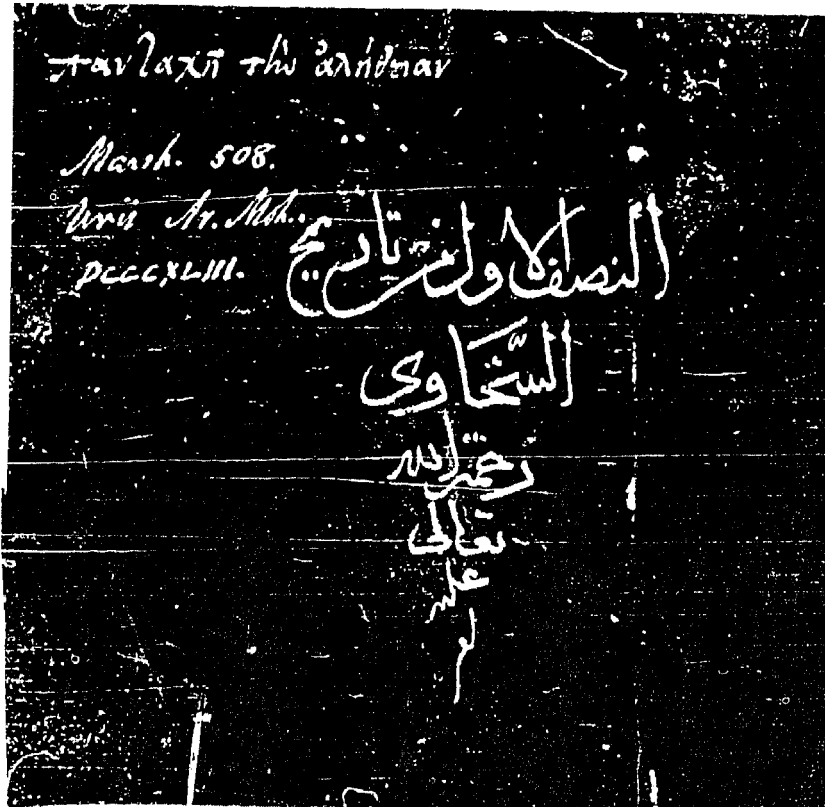 πανταχῆ τὴν ἀλήθειαν
Marsh. 508.
Urii Ar. Moh.
DCCCXLIII.
النصف الاول من تاريخ
السَّخاوى
رحمة الله
تعالى
عليه